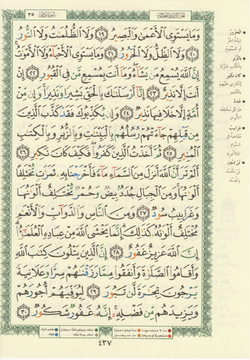 وَمَا يَسْتَوِى ٱلْأَعْمَىٰ وَٱلْبَصِيرُ ١٩ وَلَا ٱلظُّلُمَٰتُ وَلَا ٱلنُّورُ
٢٠ وَلَا ٱلظِّلُّ وَلَا ٱلْحَرُورُ ٢١ وَمَا يَسْتَوِى ٱلْأَحْيَآءُ وَلَا ٱلْأَمْوَٰتُ
إِنَّ ٱللَّهَ يُسْمِعُ مَن يَشَآءُ وَمَآ أَنتَ بِمُسْمِعٍ مَّن فِى ٱلْقُبُورِ ٢٢
إِنْ أَنتَ إِلَّا نَذِيرٌ ٢٣ إِنَّآ أَرْسَلْنَٰكَ بِٱلْحَقِّ بَشِيرًا وَنَذِيرًا وَإِن مِّنْ
أُمَّةٍ إِلَّا خَلَا فِيهَا نَذِيرٌ ٢٤ وَإِن يُكَذِّبُوكَ فَقَدْ كَذَّبَ ٱلَّذِينَ
مِن قَبْلِهِمْ جَآءَتْهُمْ رُسُلُهُم بِٱلْبَيِّنَٰتِ وَبِٱلزُّبُرِ وَبِٱلْكِتَٰبِ
ٱلْمُنِيرِ ٢٥ ثُمَّ أَخَذْتُ ٱلَّذِينَ كَفَرُوا۟ فَكَيْفَ كَانَ نَكِيرِ ٢٦
أَلَمْ تَرَ أَنَّ ٱللَّهَ أَنزَلَ مِنَ ٱلسَّمَآءِ مَآءً فَأَخْرَجْنَا بِهِۦ ثَمَرَٰتٍ مُّخْتَلِفًا
أَلْوَٰنُهَا وَمِنَ ٱلْجِبَالِ جُدَدٌۢ بِيضٌ وَحُمْرٌ مُّخْتَلِفٌ أَلْوَٰنُهَا
وَغَرَابِيبُ سُودٌ ٢٧ وَمِنَ ٱلنَّاسِ وَٱلدَّوَآبِّ وَٱلْأَنْعَٰمِ
مُخْتَلِفٌ أَلْوَٰنُهُۥ كَذَٰلِكَ إِنَّمَا يَخْشَى ٱللَّهَ مِنْ عِبَادِهِ ٱلْعُلَمَٰٓؤُا۟
إِنَّ ٱللَّهَ عَزِيزٌ غَفُورٌ ٢٨ إِنَّ ٱلَّذِينَ يَتْلُونَ كِتَٰبَ ٱللَّهِ
وَأَقَامُوا۟ ٱلصَّلَوٰةَ وَأَنفَقُوا۟ مِمَّا رَزَقْنَٰهُمْ سِرًّا وَعَلَانِيَةً
يَرْجُونَ تِجَٰرَةً لَّن تَبُورَ ٢٩ لِيُوَفِّيَهُمْ أُجُورَهُمْ
وَيَزِيدَهُم مِّن فَضْلِهِۦٓ إِنَّهُۥ غَفُورٌ شَكُورٌ ٣٠
٤٣٧